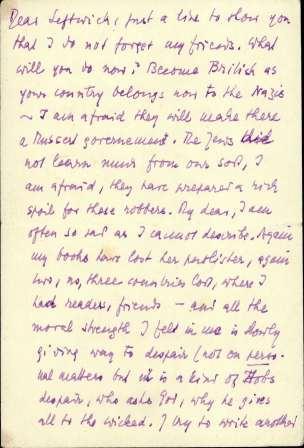 Dear Leftwich, just a line to show you
that I do not forget my friends. What
will you do now? Become British as
your country belongs now to the Nazis
~ I am afraid they will make there
a Mussert governement. The Jews did
not learn much from our sort, I
am afraid, they have prepared a rich
spoil for these robbers. My dear, I am
often so sad as I cannot describe. Again
my books have lost her publisher, again
two, no, three countries lost, where I
had readers, friends — and all the
moral strength I felt in me is slowly
giving way to despair (not on perso-
nal matters but in a kind of Hobs
despair, who asks God, why he gives
all to the wicked. I try to write another